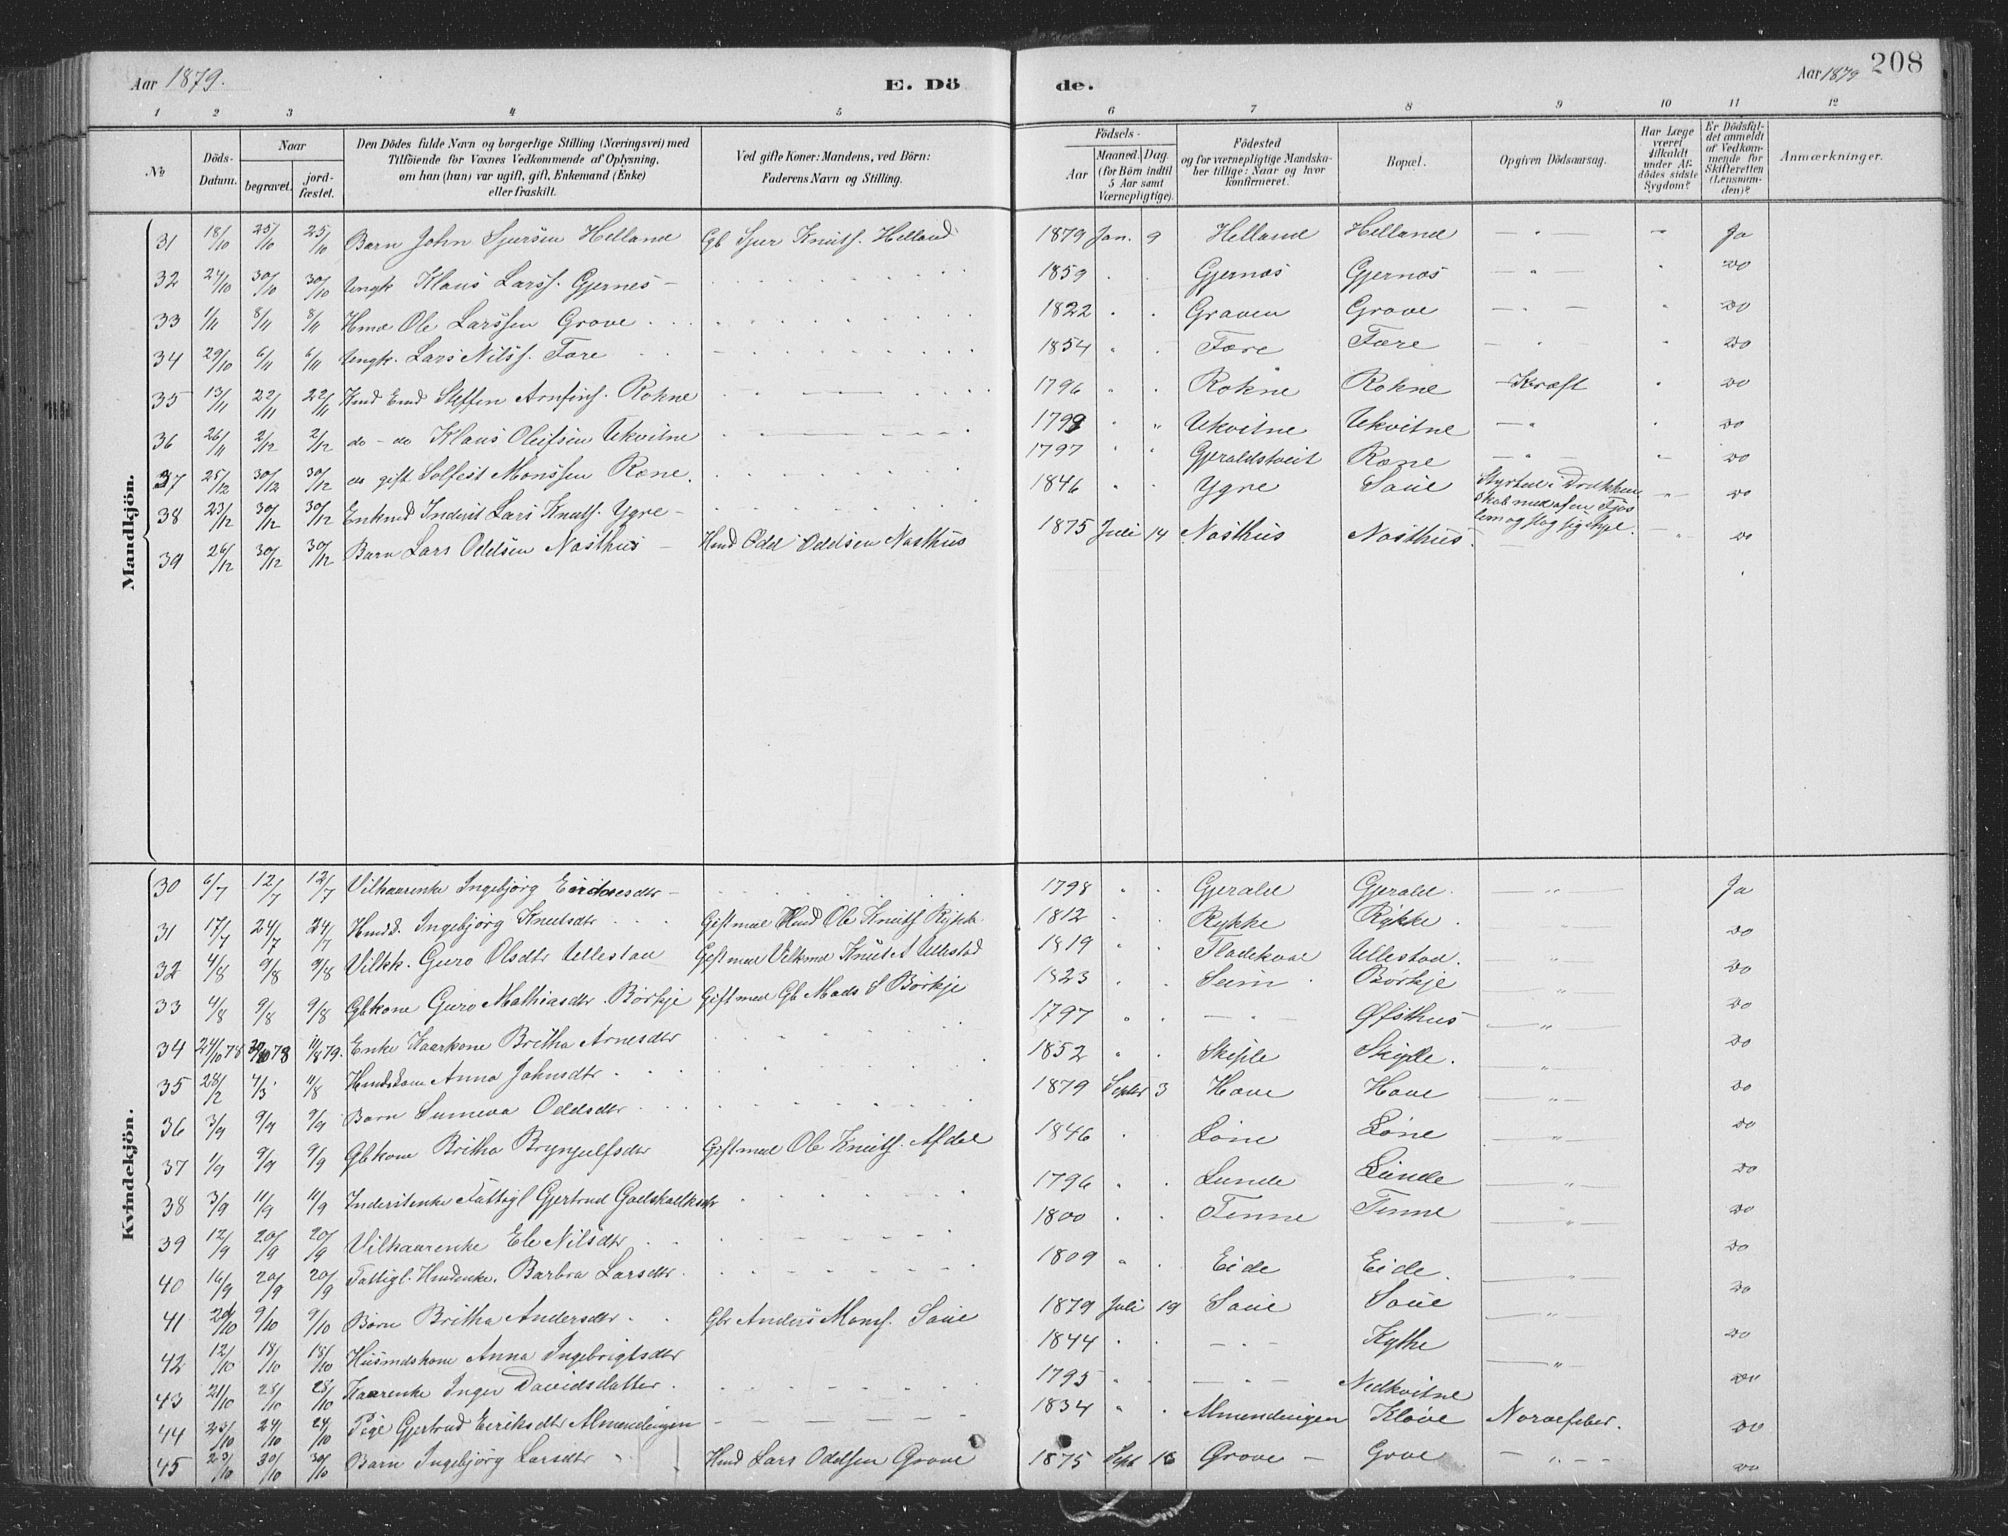 Aar 1879. E. Dö de. Aar 1879 208
1 2 3 4 5 6 7 8 9 10 11 12
No
Döds-Datum.
Naar
begravet. jord-fæstet.
Den Dödes fulde Navn og borgerlige Stilling (Næringsvei) med
Tilföiende for Voxnes Vedkommende af Oplysning,
om han (hun) var ugift, gift, Enkemand (Enke)
eller fraskilt.
Ved gifte Koner: Mandens, ved Börn:
Faderens Navn og Stilling.
Födsels-
Aar Maaned. Dag.
(for Börn indtil
5 Aar samt
Værnepligtige).
Födested
og for værnepligtige Mandska-
ber tillige: Naar og hvor
konfirmeret.
Bopæl.
Opgiven Dödsaarsag.
Har Læge
været
tilkaldt
under Af-
dödes sidste
Sygdom?
Er Dödsfal-
det anmeldt
af Vedkom-
mende for
Skifteretten
(Lensman-
den)?
Anmærkninger.
Mandkjön.
31 18/10 25/10 25/10 Barn John Sjursen Helland Gb Sjur Knuts. Helland 1879 Jan. 9 Helland Helland — " — " Ja
32 24/10 30/10 30/10 Ungk Klaus Larss. Gjernes 1859 Gjernes Gjernes — " — Do
33 1/11 8/11 8/11 Hmd Ole Larssen Grove 1822 Graven Grove — " — Do
34 29/10 6/11 6/11 Ungk. Lars Nilss. Fære 1854 Fære Fære — " — Do
35 13/11 22/11 22/11 Hmd Emd Steffen Arnfins. Rokne 1796 Rokne Rokne Kræft Do
36 26/11 2/12 2/12 do - do Klaus Olefsen Ukvitne Ukvitne Ukvitne — " Do
37 25/12 30/12 30/12 do gift Solfest Monssen Rene 1797 Gjeraldstveit Rene — " — Do
38 23/12 30/12 30/12 Enkmd Inderst Lars Knuts. Ygre 1846 Ygre Saue Styrtede i Drukken
skab ned af en Fjøs
lem og slog sig ihjel. Do
39 26/12 30/12 30/12 Barn Lars Oddsen Nasthus Hmd Odd Oddsen Nasthus 1875 Juli 14 Nasthus Nasthus Do
Kvindekjön.
30 6/7 12/7 12/7 Vilkaarenke Ingebjørg Eiriksdtr 1798 Gjerald Gjerald. — " — Ja
31 17/7 24/7 24/7 Ingebjørg Knutsdtr Gift med Hmd Ole Knuts Rykke 1812 Rykke Rykke. — " — Do
32 4/8 9/8 9/8 Vilkk. Guro Olsdtr Ullestad Gift med Vilkmd Knut A Ullestad 1819 Fladekval Ullestad. — " — Do
33 4/8 9/8 9/8 Gbkone Guro Mathiasdtr. Børkje Gift med Gb Mads S Børkje 1823 Seim Børkje — " — Do
34 24/10 78 30/10 78 11/8 79. Enke Kaarkone Britha Arnesdtr 1797 — " — Øfsthus — " — Do
35 28/2 4/3 11/8 Anna Johnsdtr 1852 Skiple Skiple. — " — Do
36 3/9 9/9 9/9 Barn Sumeva Oddsdtr 1879 Septbr 3 Hove Hove — " — Do
37 1/9 9/9 9/9 Gbkone Britha Brynjulfsdtr Gift med Ole Knuts. Afdal 1846 Løne Løne — " — Do
38 3/9 11/9 11/9 Inderstenke Fattigl Gjertrud Godskalksdtr 1796 Lunde Lunde — " — Do
39 12/9 20/9 20/9 Vilkaarenke Eli Nilsdtr 1800 Finne Finne — " — Do
40 16/9 20/9 20/9 Fattigl. Hmdenke. Barbra Larsdtr. 1809 Eide Eide. — " — Do
41 9/10 9/10 Barn Britha Andersdtr Gbr Anders Mons. Saue 1879 Juli 19 Saue Saue — " — Do
42 12/10 18/10 18/10 Husmdskone Anna Ingebrigtsdtr 1844 — " — Kythe — " — Do
43 21/10 28/10 28/10 Kaarenke Inger Davidsdatter 1795 — " — Nedkvitne — " — Do
44 23/10 24/10 24/10 Pige Gjertrud Eiriksdtr Almendingen 1834 Almendingen Kløve Nervefeber. Do
45 23/10 30/10 30/10 Barn Ingebjørg Larsdtr Hmd Lars Oddsen Grove 1875 Sept 16 Grove Grove — " — Do